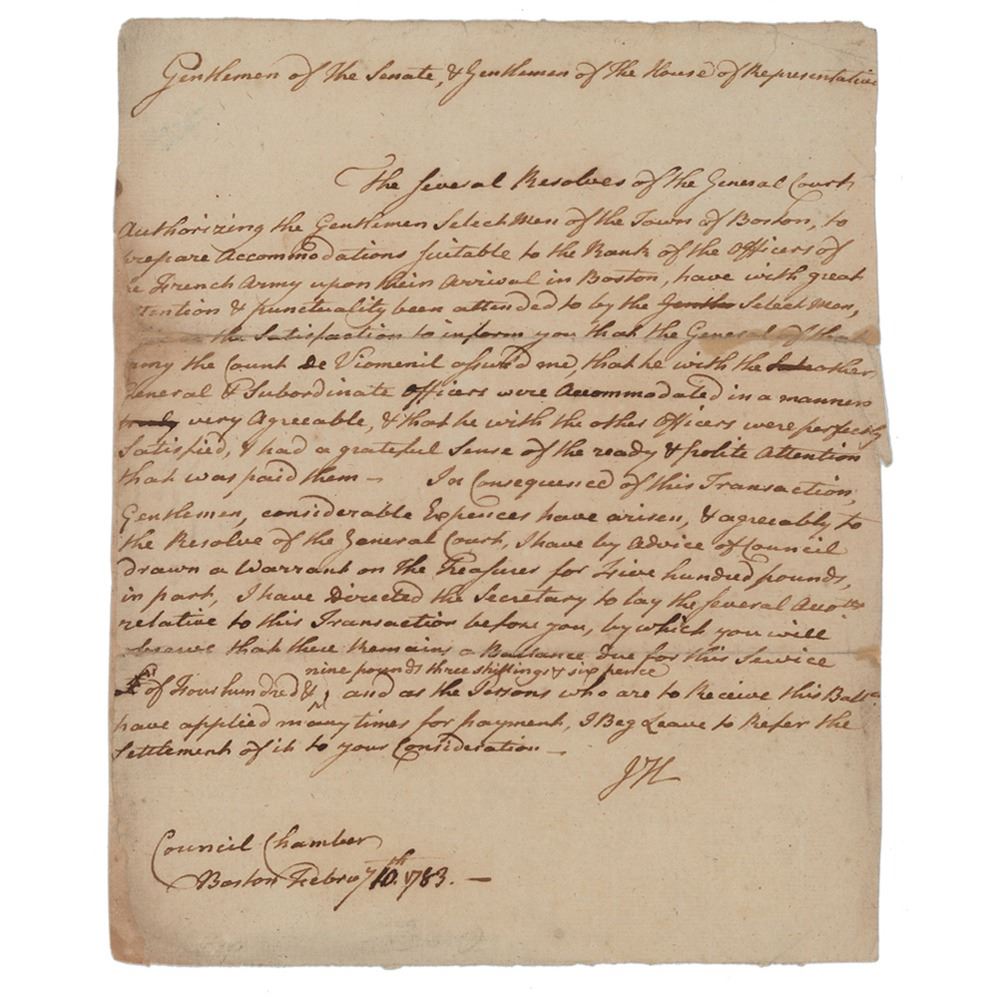 Gentlemen of the Senate, & Gentlemen of the House of Representative
The several Resolves of the General Court
Authorizing the Gentlemen Select Men of the Town of Boston, to
repare Accommodations suitable to the Rank of the Officers of
e French Army upon their Arrival in Boston, have with great
tention & punctuality been attended to by the Gentle Select Men,
the Satisfaction to inform you that the General of that
rmy the Count de Viomenil assured me, that he with the other
General & Subordinate Officers were Accommodated in a manner
truly very Agreeable, & that he with the other Officers were perfectly
Satisfied, & had a grateful Sense of the ready & polite Attention
that was paid them — In Consequence of this Transaction,
Gentlemen, considerable Expences have arisen, & agreeably to
the Resolve of the General Court, I have by Advice of Council
drawn a Warrant on the Treasurer for Five hundred pounds,
in part, I have Directed the Secretary to lay the several Accotts
relative to this Transaction before you, by which you will
observe that there Remains a Ballance due for this Service
nine pounds three shillings & six pence
of Four hundred & , and as the Persons who are to Receive this Balla
have applied many times for payment, I Beg Leave to Refer the
Settlement of it to your Consideration —
JH
Council Chamber
Boston Febray 10th. 1783. —